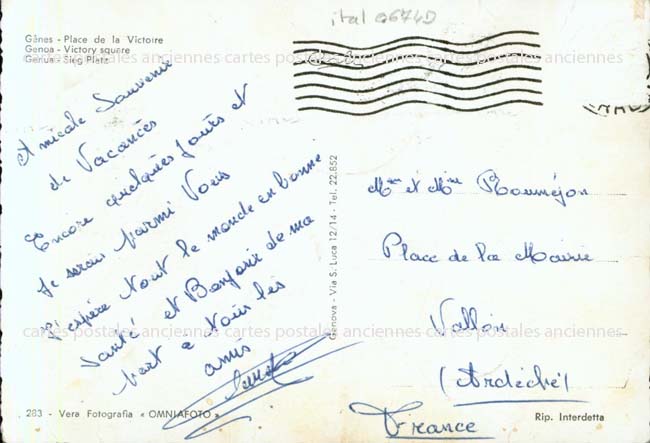 ital 06740
Gênes - Place de la Victoire
Genoa - Victory square
Genua - Sieg Platz
cartes postales anciennes cartes postales anciennes cartes postales anciennes
Amicale Souvenir
de Vacances
Encore quelques Jours et
Je serais parmi Vous
J'espère tout le monde en bonne
Santé et Bonjour de ma
part a tous les
amis
Genova - Via S. Luca 12/14 - Tel. 22.852
Mr et Mme
Place de la Mairie
Vallon
(Ardèche)
France
cartes postales anciennes cartes postales anciennes cartes postales anciennes
283 - Vera Fotografia « OMNIAFOTO »
Rip. Interdetta